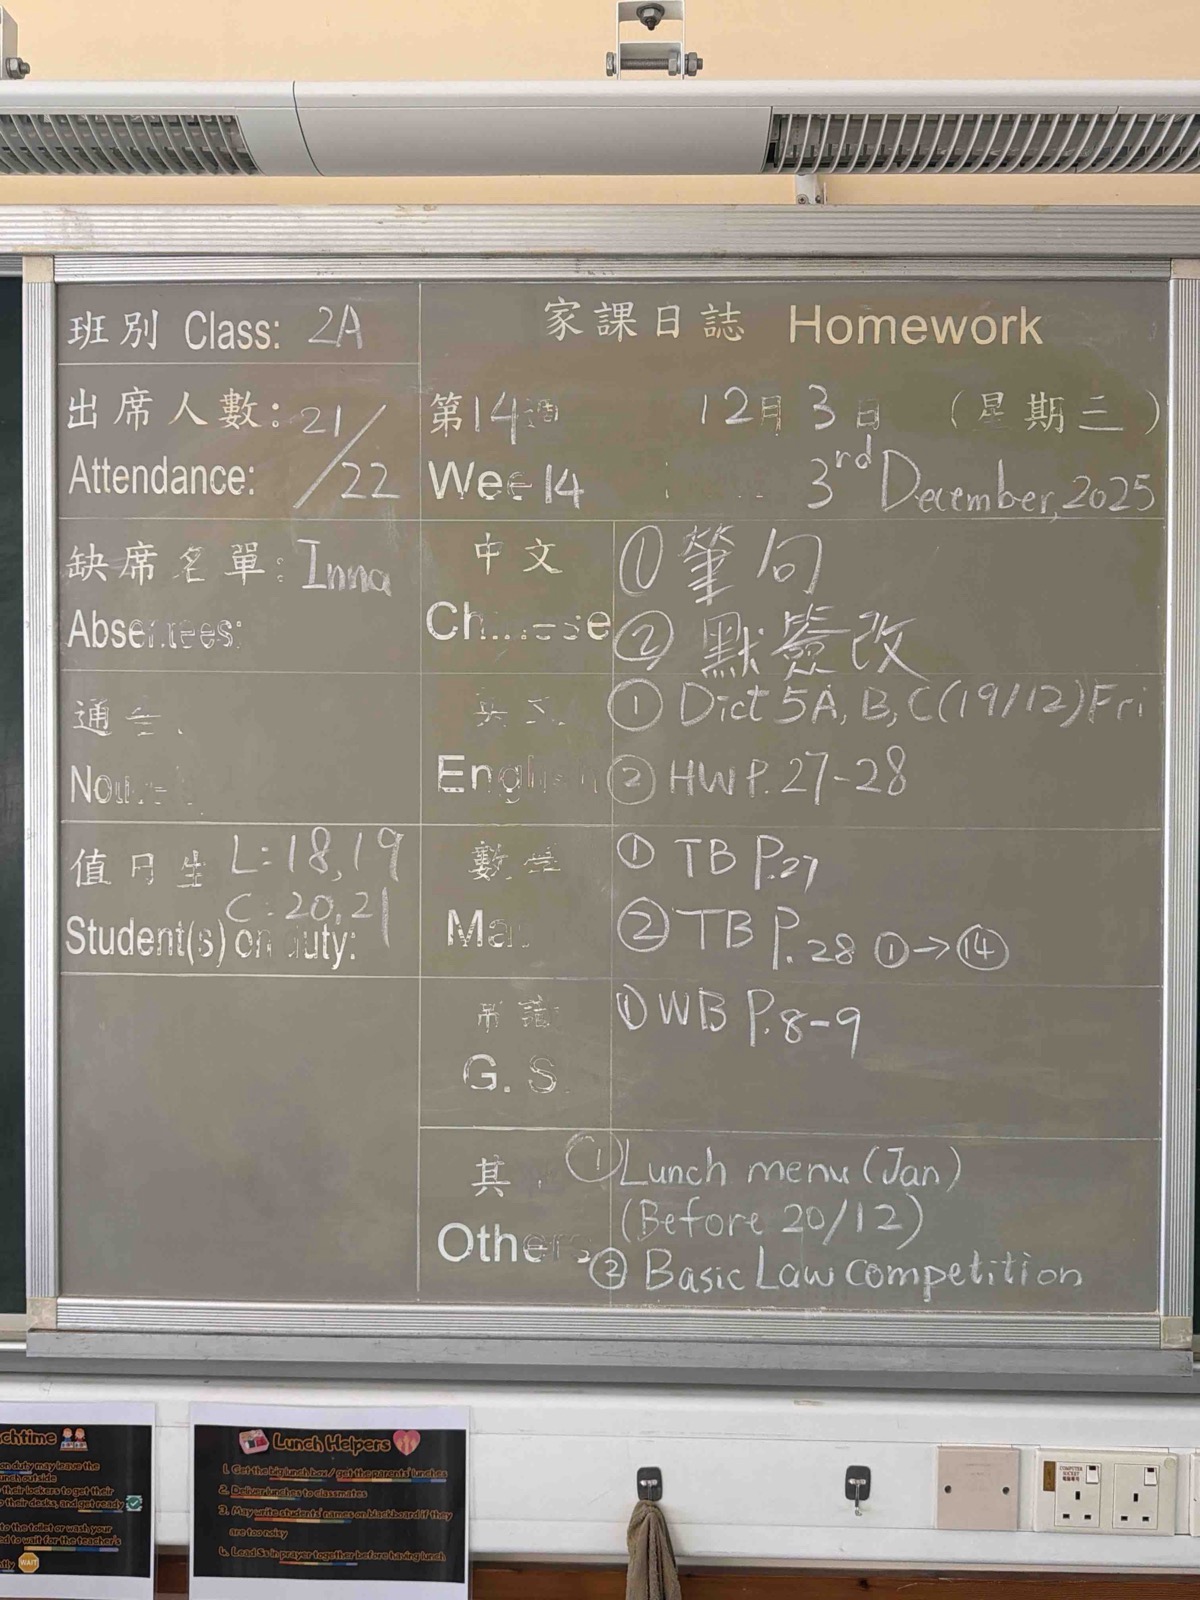 班別 Class: 2A
家課日誌 Homework
出席人數: 21/22
Attendance:
第14週 12月3日 (星期三)
Wee 14 3rd December, 2025
缺席名單: Inna
Absentees:
中文
Chinese
① 筆句
② 默簽改
通告
英文
English
① Dict 5A, B, C (19/12) Fri
② HW P. 27-28
值日生 L: 18, 19
C: 20, 21
Student(s) on duty:
數學
Ma
① TB P.27
② TB P. 28 ①→⑭
常識
G. S.
① WB P.8-9
其
Others
① Lunch menu (Jan)
(Before 20/12)
② Basic Law competition
chtime
on duty may leave the
unch outside
their lockers to get their
their desks, and get ready
to the toilet or wash your
ed to wait for the teacher's
WAIT
Lunch Helpers
1. Get the big lunch box / get the parents' lunches
2. Deliver lunches to classmates
3. May write students' names on blackboard if they
are too noisy
4. Lead Ss in prayer together before having lunch
COMPUTER
SOCKET